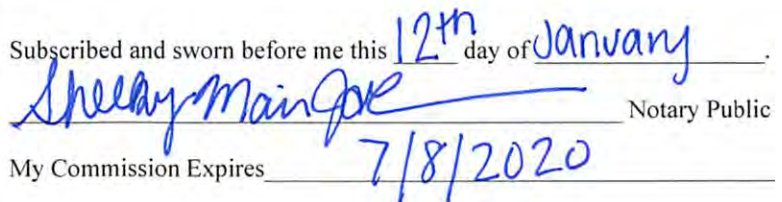 Subscribed and sworn before me this 12th day of January.
Shelby Main Notary Public
My Commission Expires 7/8/2020